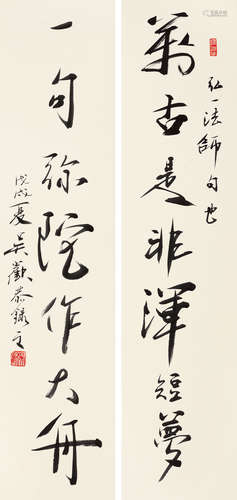 萬古是非渾短夢
弘一法師句也
一句彌陀作大舟
戊戌夏吳歡恭録之